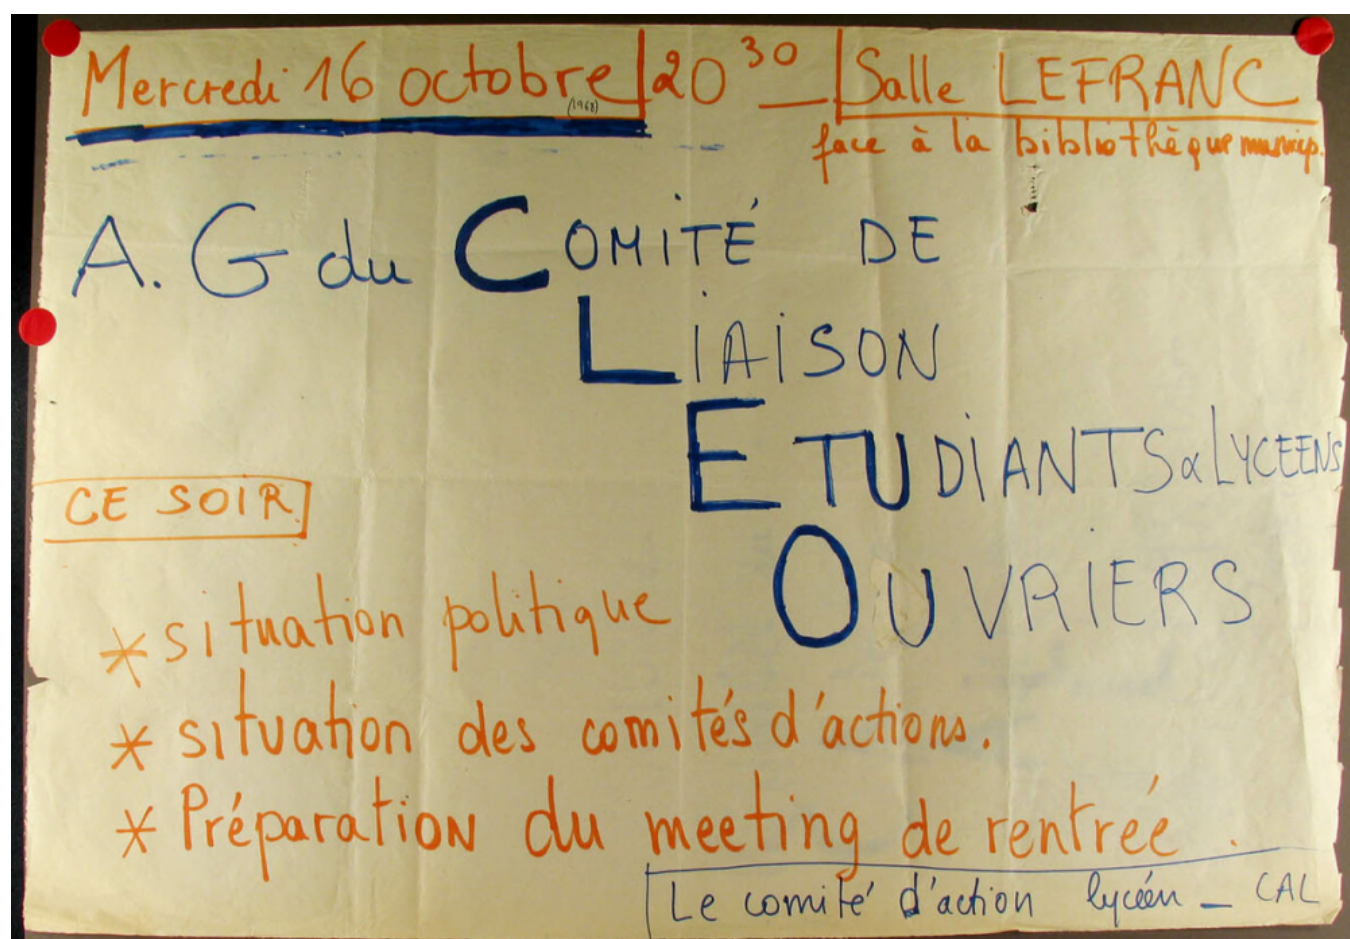 Mercredi 16 octobre 20 30 _ Salle LEFRANC
(1968)
face à la bibliothèque municip.
A. G du COMITÉ DE
LIAISON
ETUDIANTS & LYCEENS
OUVRIERS
CE SOIR
* situation politique
* situation des comités d'actions.
* Préparation du meeting de rentrée.
Le comité d'action lycéen _ CAL